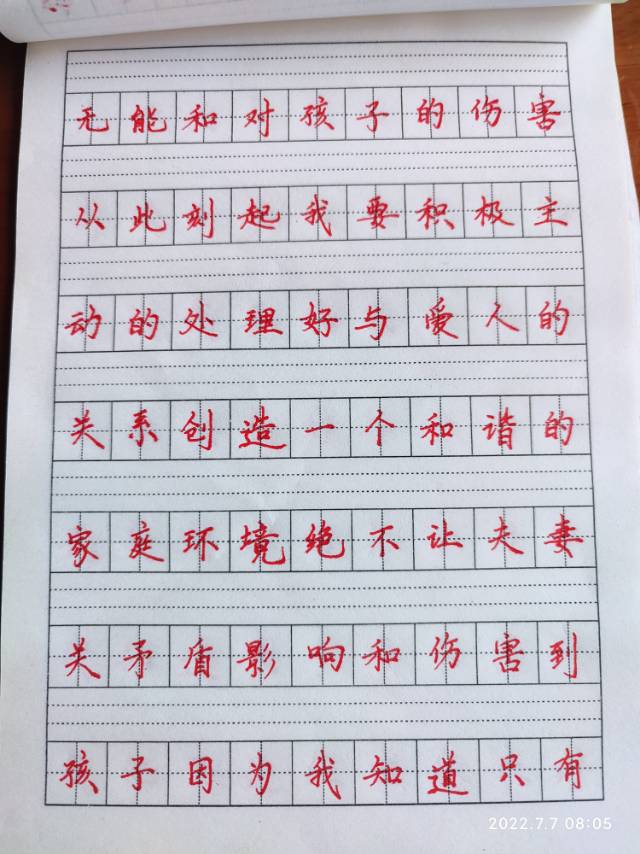 无能和对孩子的伤害
从此刻起我要积极主
动的处理好与爱人的
关系创造一个和谐的
家庭环境绝不让夫妻
关矛盾影响和伤害到
孩子因为我知道只有
2022.7.7 08:05